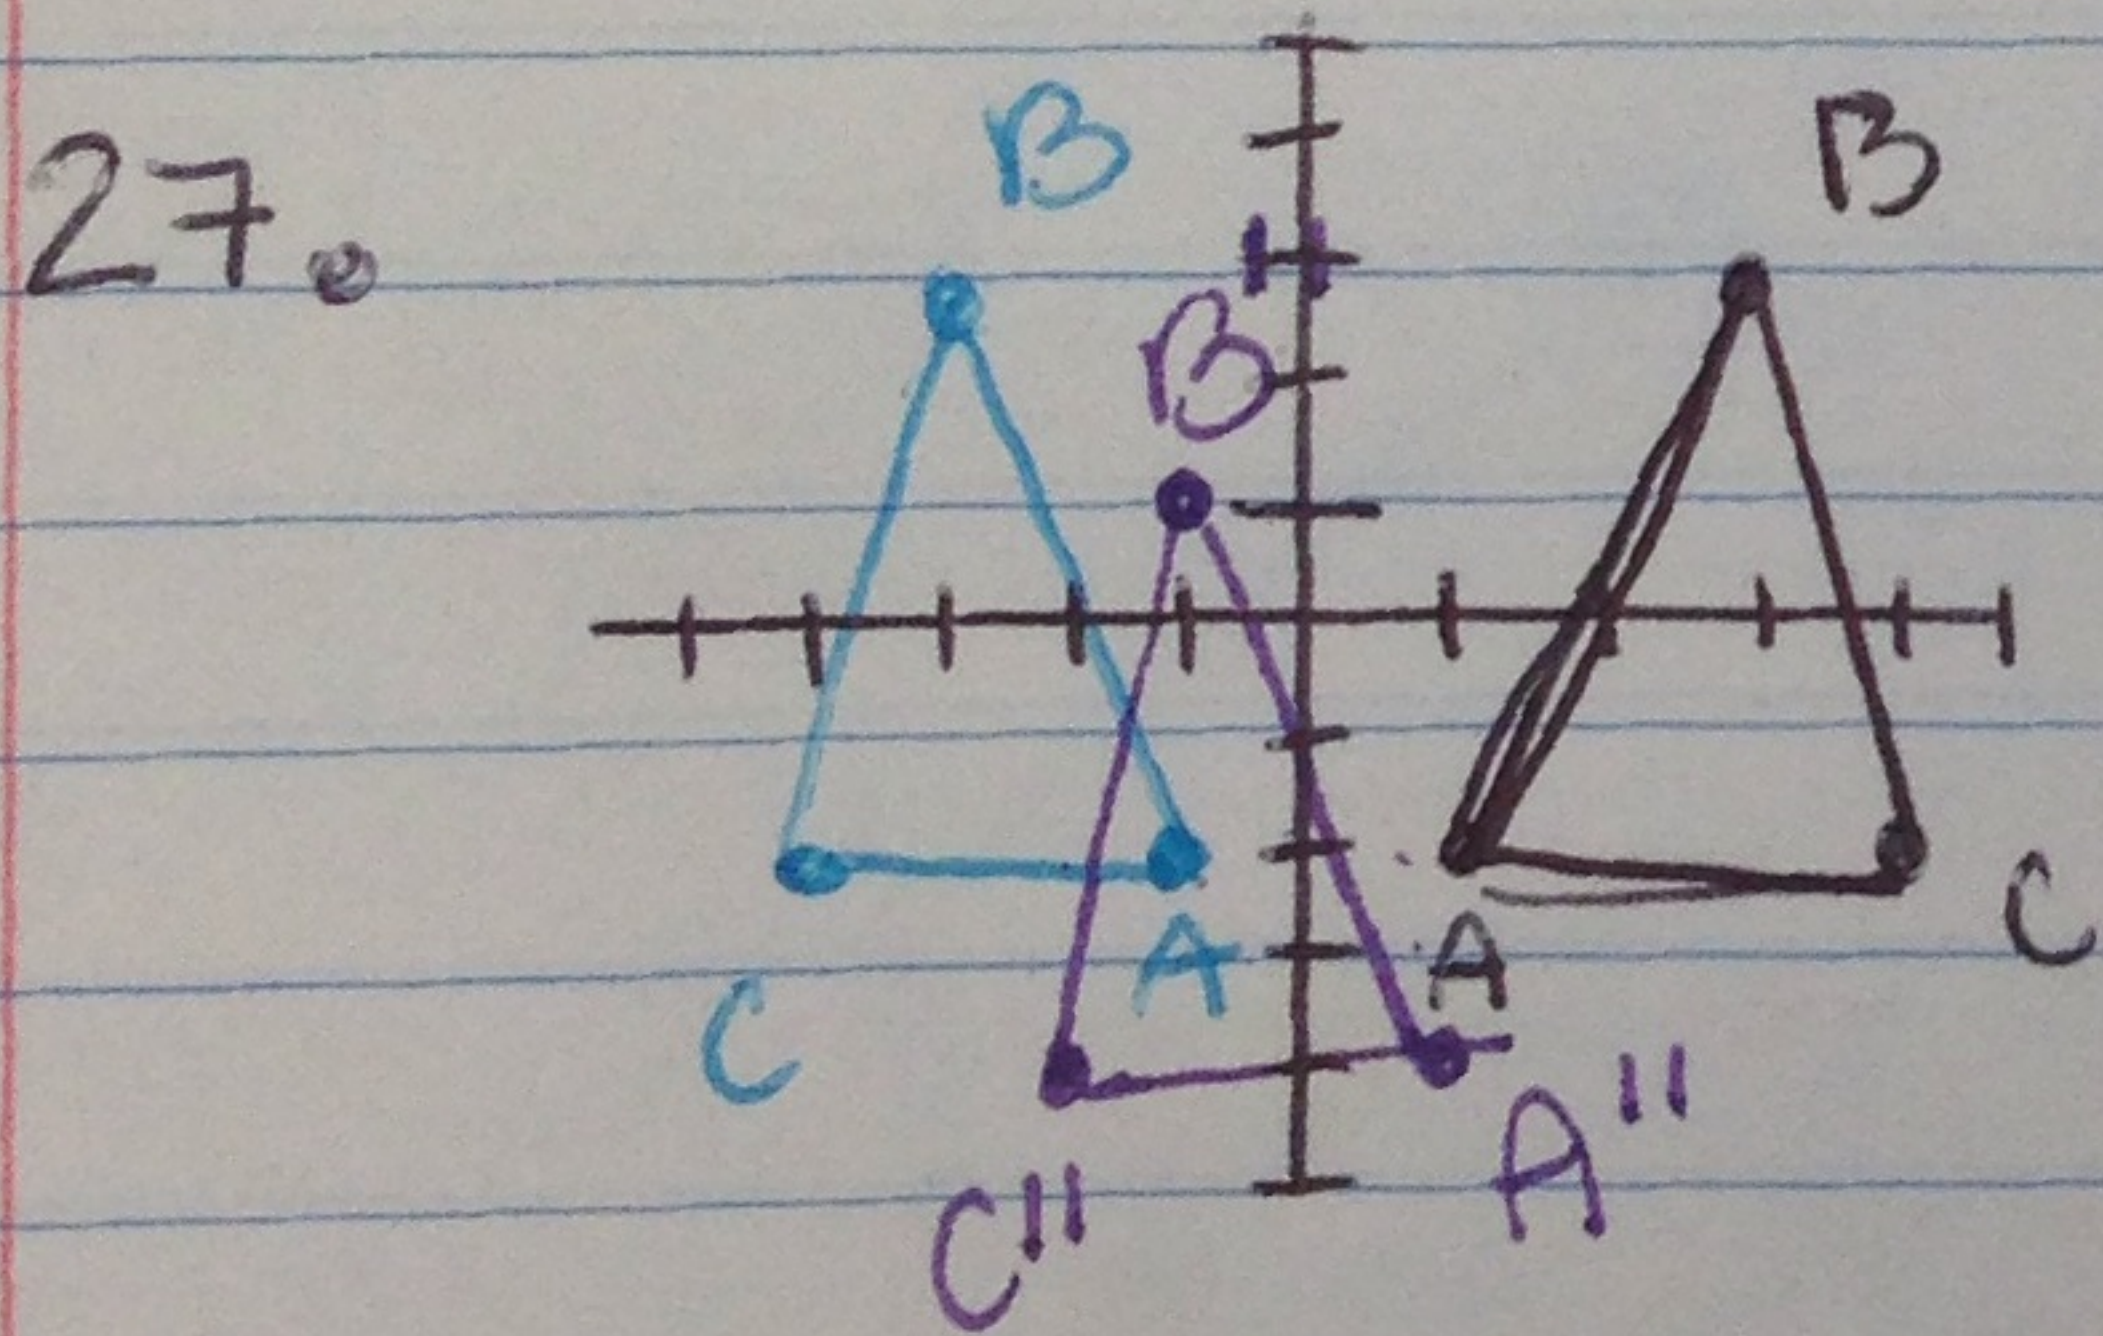 27.
B B
B"
A A C
C A"
C"